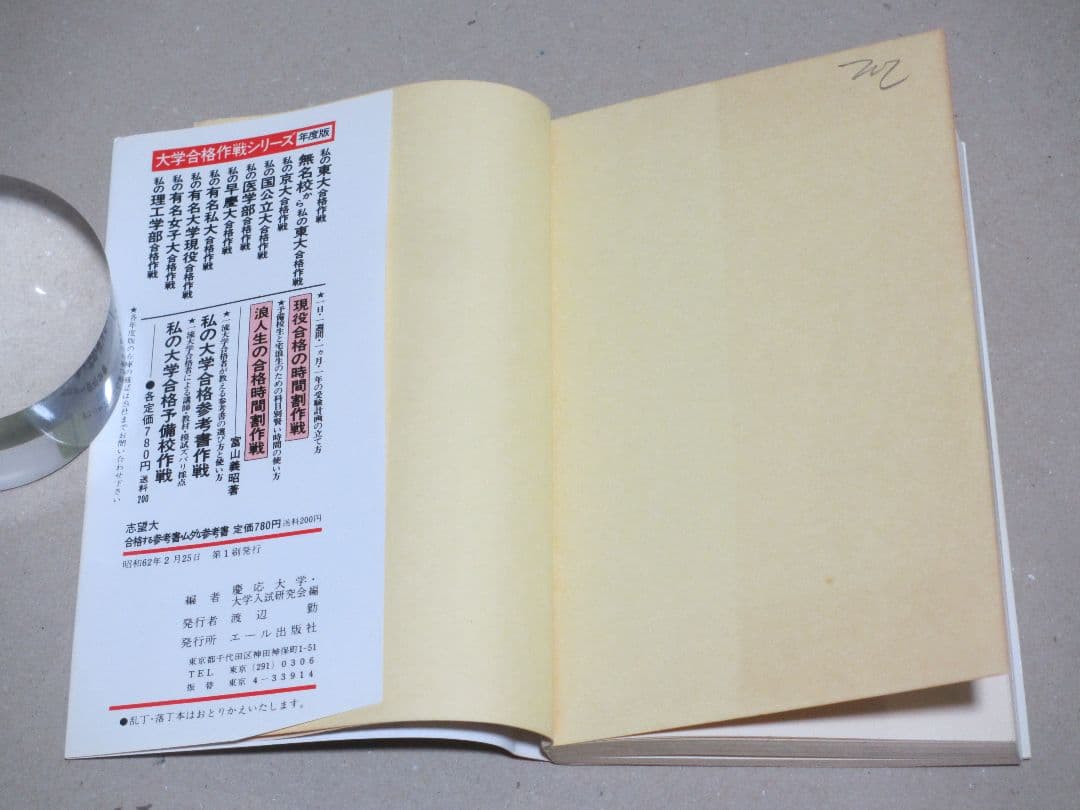 大学合格作戦シリーズ 年度版
私の東大合格作戦
無名校から私の東大合格作戦
私の京大合格作戦
私の国公立大合格作戦
私の医学部合格作戦
私の早慶大合格作戦
私の有名私大合格作戦
私の有名大学現役合格作戦
私の有名女子大合格作戦
私の理工学部合格作戦
★一日・一週間・一ヵ月・一年の受験計画の立て方
現役合格の時間割作戦
★予備校生と宅浪生のための科目別賢い時間の使い方
浪人生の合格時間割作戦
富山義昭著
★一流大学合格者が教える参考書の選び方と使い方
私の大学合格参考書作戦
★一流大学合格者による講師・教材・模試ズバリ採点
私の大学合格予備校作戦
●各定価780円 送料200
★各年度版の在庫の確認は当社までお問い合わせ下さい
志望大
合格する参考書・ムダな参考書 定価780円 送料200円
昭和62年2月25日 第1刷発行
編者 慶応大学・
大学入試研究会編
発行者 渡辺 勤
発行所 エール出版社
東京都千代田区神田神保町1-51
TEL 東京(291)0306
振替 東京4-33914
●乱丁・落丁本はおとりかえいたします。